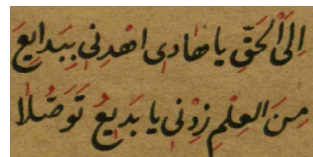 اِلَى الْحَقِّ يَا هَادِى اهْدِنِى بِبَدَايِعَ
مِنَ الْعِلْمِ زِدْنِى يَا بَدِيعُ تَوَصُّلَا